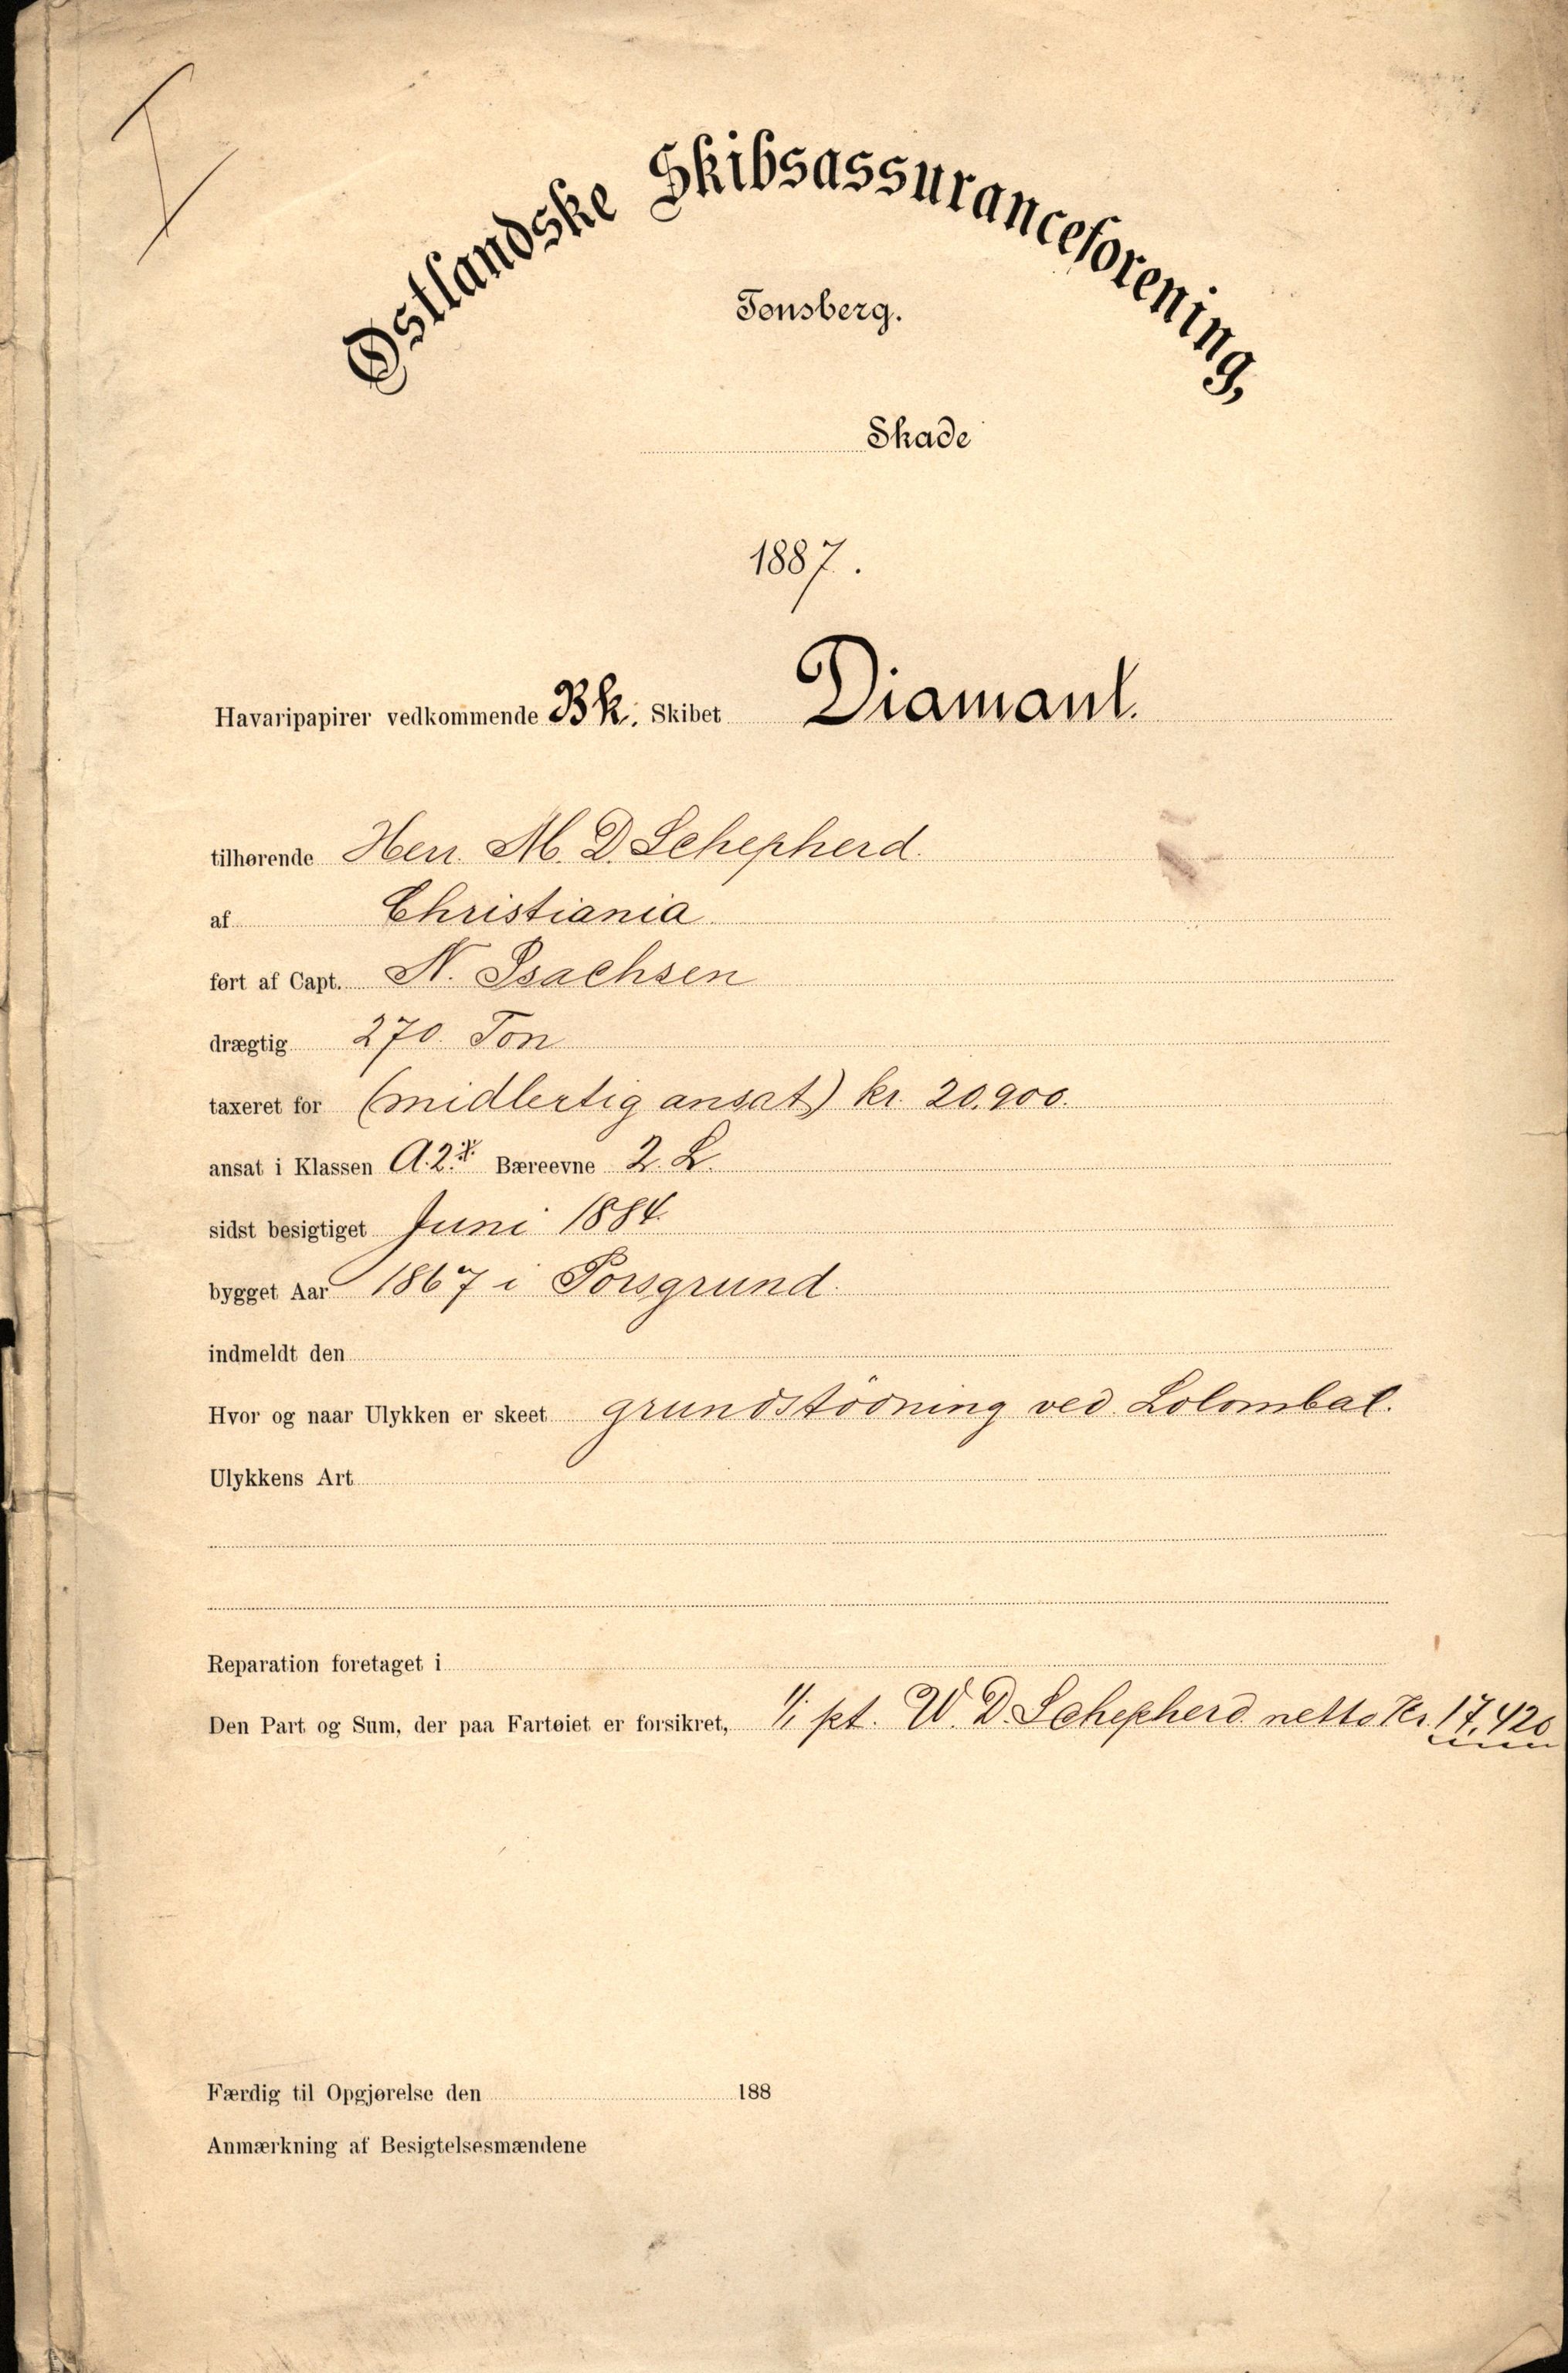 Østlandske Skibsassuranceforening,
Tønsberg.
Skade
1887.
Havaripapirer vedkommende Bk. Skibet Diamant.
tilhørende Herr. M. D. Schepherd.
af Christiania
ført af Capt. N. Isachsen
drægtig 270 Ton
taxeret for (midlertig ansat) kr. 20.900.
ansat i Klassen A.2. Bæreevne 2. L.
sidst besigtiget Juni 1884.
bygget Aar 1867 i Porsgrund.
indmeldt den
Hvor og naar Ulykken er skeet grundstödning ved Lolombal.
Ulykkens Art
Reparation foretaget i
Den Part og Sum, der paa Fartøiet er forsikret, 1/1 pt. W. D. Schepherd netto Kr. 17.420
Færdig til Opgjørelse den 188
Anmærkning af Besigtelsesmændene